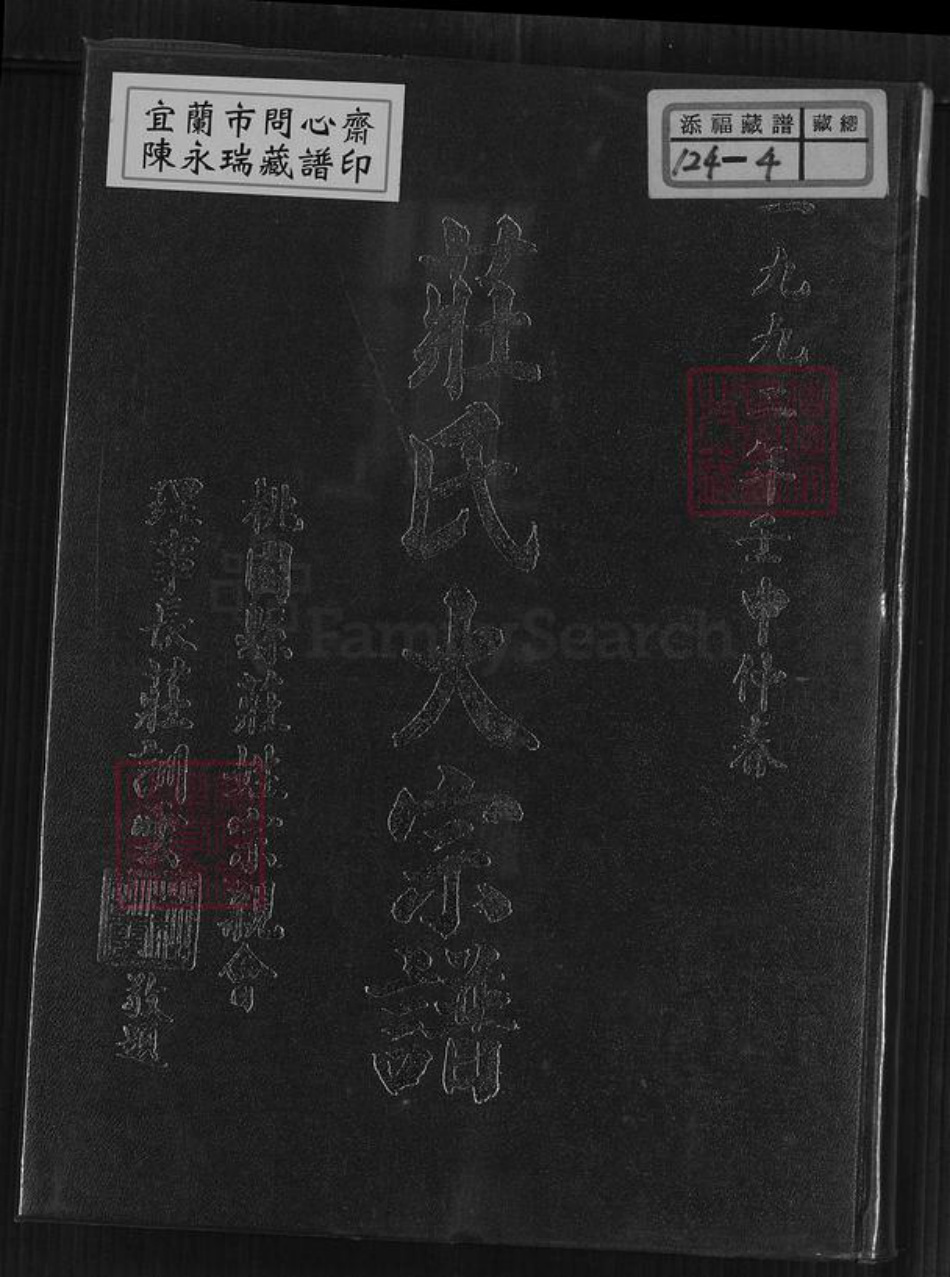 宜蘭市問心齋
陳永瑞藏譜印
添福藏譜 藏總
124-4
一九九二年壬申仲春
莊氏大宗譜
桃園縣莊姓宗親會
理事長莊訓 敬題
FamilySearch